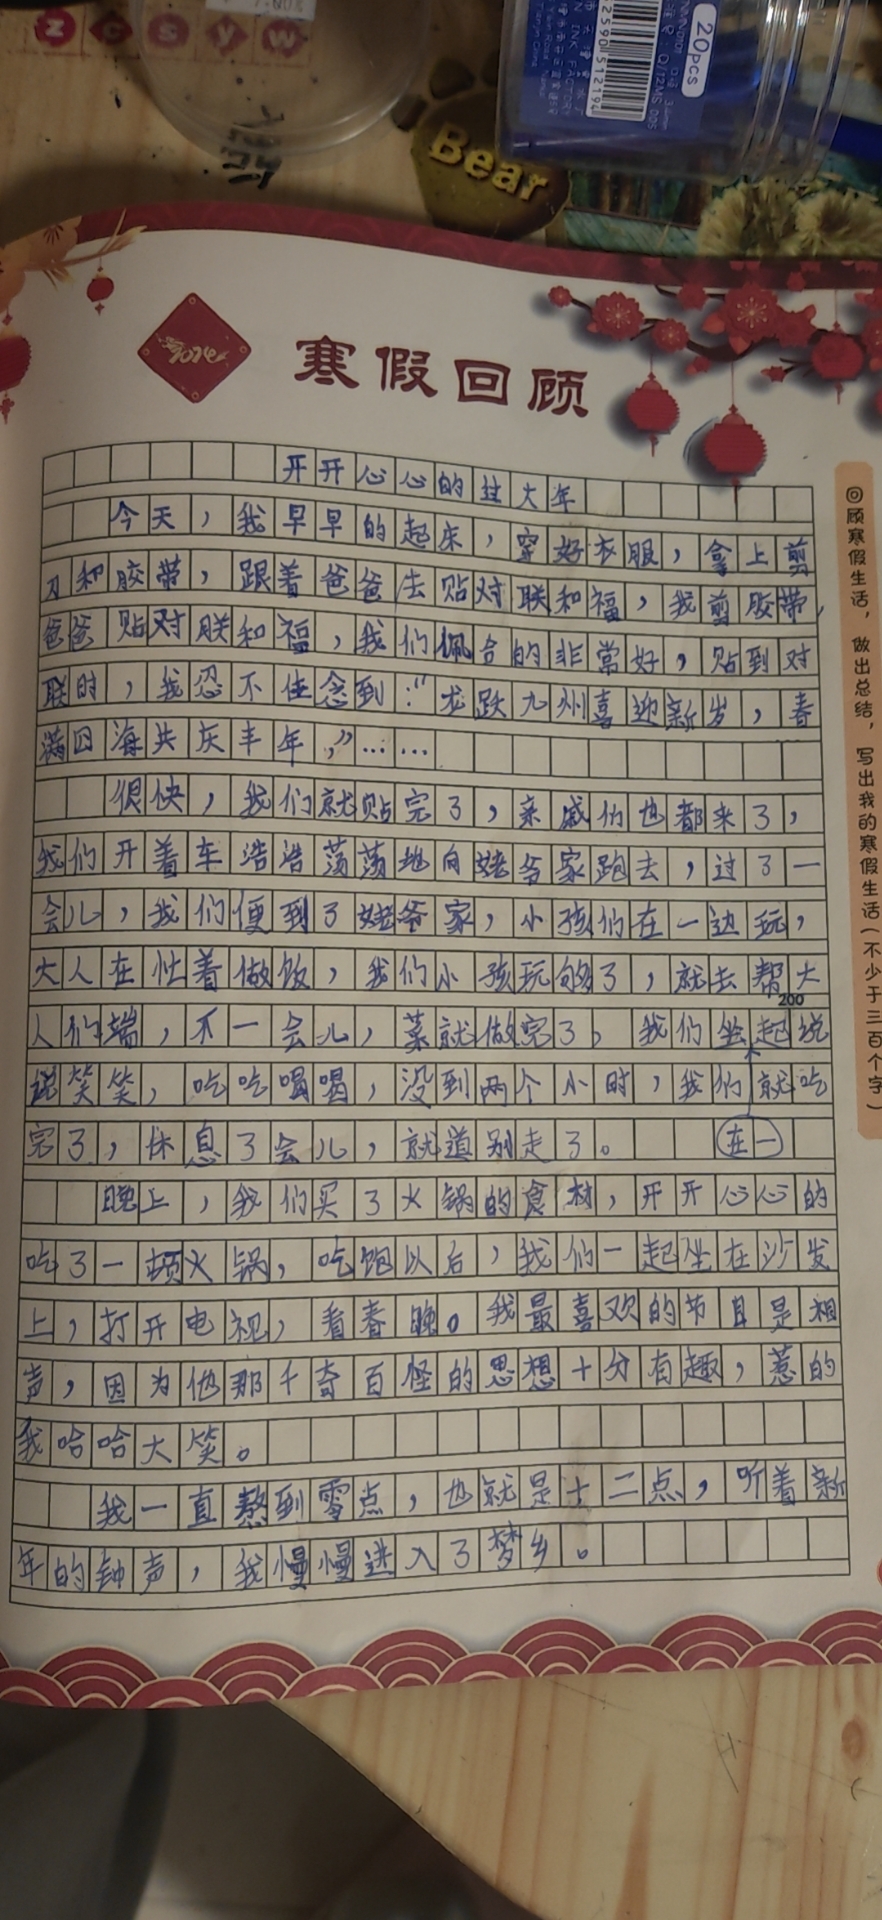 z c s y w
20pcs
Q/12MS 005
2590 512194
INK FACTORY
Bear
2024
寒假回顾
开开心心的过大年
今天，我早早的起床，穿好衣服，拿上剪
刀和胶带，跟着爸爸去贴对联和福，我剪胶带，
爸爸贴对联和福，我们佩合的非常好，贴到对
联时，我忍不住念到：“龙跃九州喜迎新岁，春
满四海共庆丰年，”……
很快，我们就贴完了，亲戚们也都来了，
我们开着车浩浩荡荡地向姥爷家跑去，过了一
会儿，我们便到了姥爷家，小孩们在一边玩，
大人在忙着做饭，我们小孩玩够了，就去帮大
200
人们端，不一会儿，菜就做完了，我们坐起说
说笑笑，吃吃喝喝，没到两个小时，我们就吃
完了，休息了会儿，就道别走了。 在一
晚上，我们买了火锅的食材，开开心心的
吃了一顿火锅，吃饱以后，我们一起坐在沙发
上，打开电视，看春晚。我最喜欢的节目是相
声，因为他那千奇百怪的思想十分有趣，惹的
我哈哈大笑。
我一直熬到零点，也就是十二点，听着新
年的钟声，我慢慢进入了梦乡。
回顾寒假生活，做出总结，写出我的寒假生活（不少于三百个字）